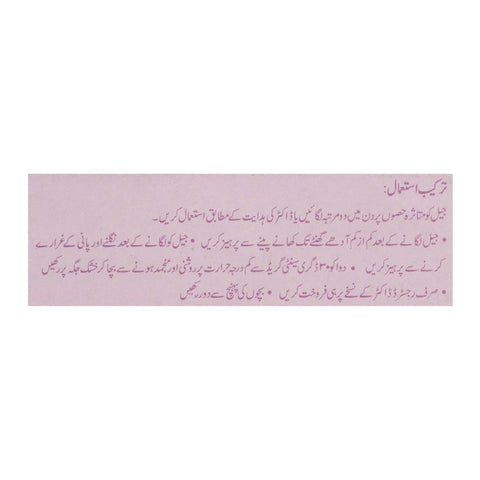 ترکیب استعمال:
جیل کو متاثرہ حصوں پر دن میں دو مرتبہ لگائیں یا ڈاکٹر کی ہدایت کے مطابق استعمال کریں۔
• جیل لگانے کے بعد کم از کم آدھے گھنٹے تک کھانے پینے سے پرہیز کریں • جیل کو لگانے کے بعد نگلنے اور پانی کے غرارے
کرنے سے پرہیز کریں • دوا کو ۳۰ ڈگری سینٹی گریڈ سے کم درجہ حرارت پر روشنی اور منجمد ہونے سے بچا کر خشک جگہ پر رکھیں
• صرف رجسٹرڈ ڈاکٹر کے نسخے پر ہی فروخت کریں • بچوں کی پہنچ سے دور رکھیں